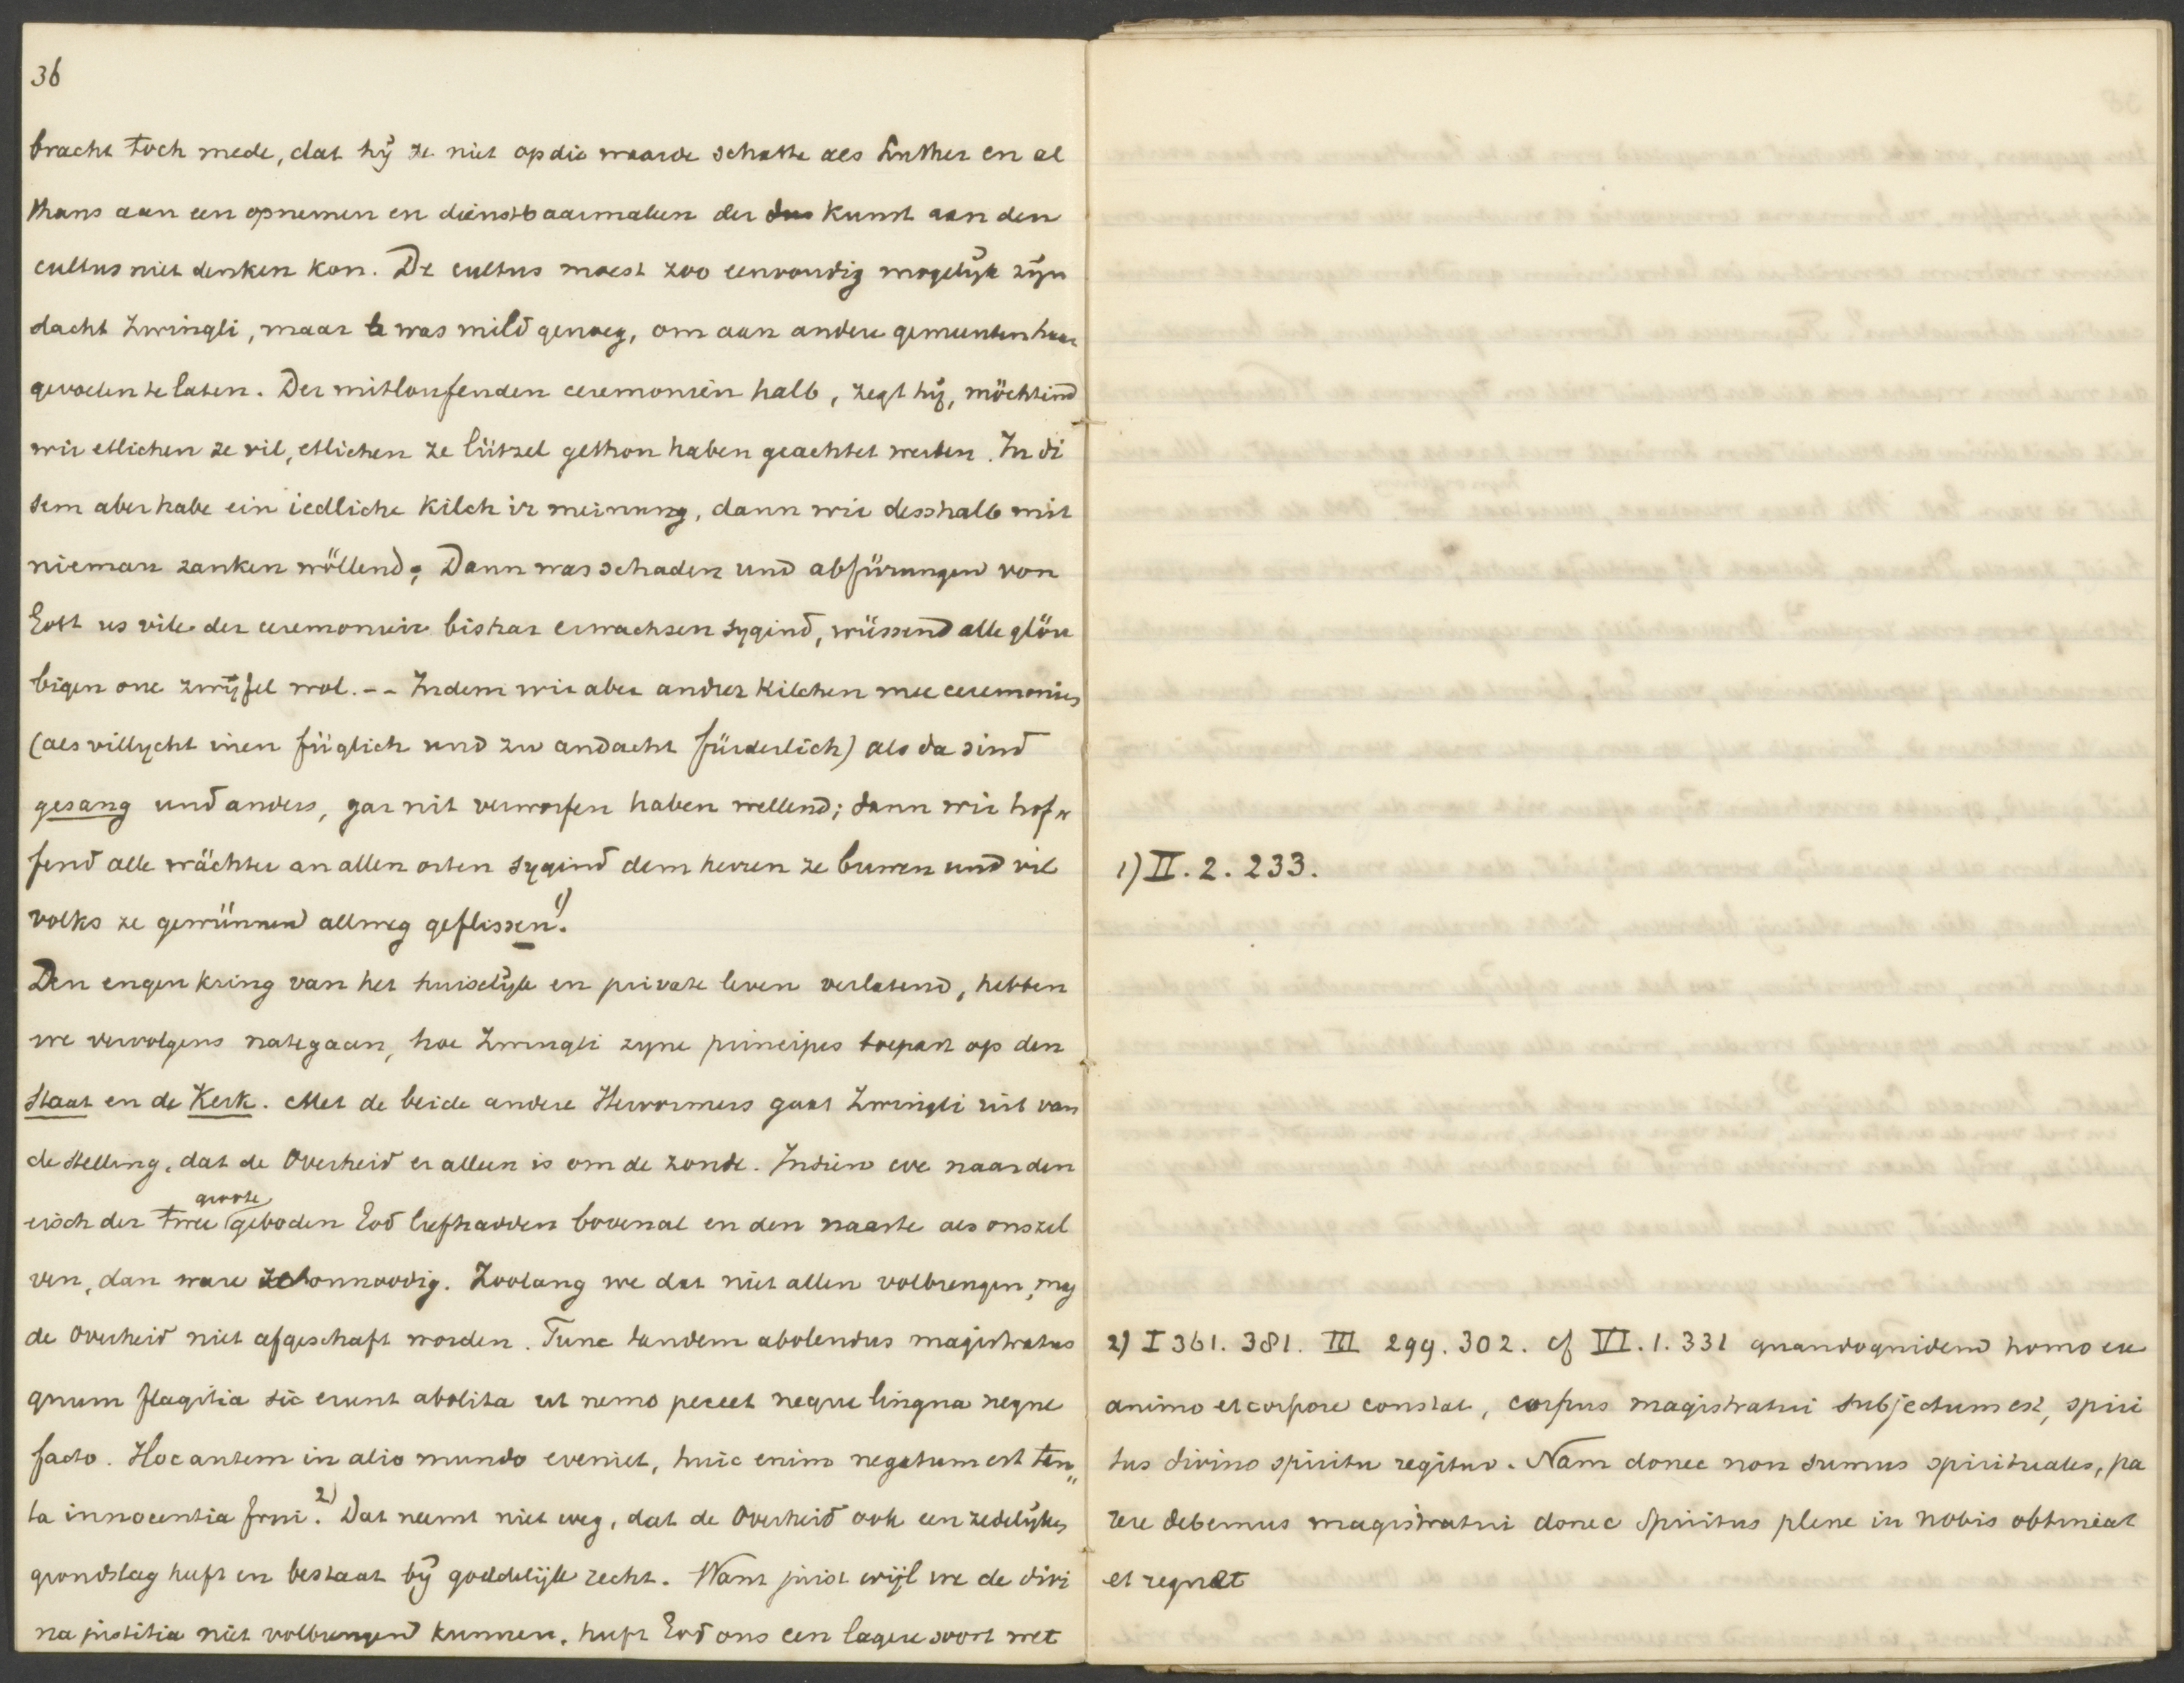 36
bracht toch mede, dat hij ze niet op die waarde schatte als Luther en al
thans aan een opnemen en dienstbaarmaken der kunst aan den
cultus niet denken kon. De cultus moest zoo eenvoudig mogelijk zijn
dacht Zwingli, maar was mild genoeg, om aan andere gemeenten haar
gevoelen te laten. Der mitloufenden ceremonien halb, zegt hij, möchtind
wir etlichen ze vil, etlichen ze lützel gethon haben geachtet werden. In di
sem aber habe ein iedliche Kilch ir meinung, dann wir desshalb mit
nieman zanken wöllend; Dann was schaden und abfürungen von
Gott us vile der ceremonien bishar erwachsen sygind, wüssend alle glöu
bigen one zwyfel wol. -- Indem wir aber andrer Kilchen mee ceremonien
(als villycht inen füglich und zu andacht fürderlich) als da sind
gesang und anders, gar nit verworfen haben wellend; dann wir hof
fend alle wächter an allen orten sygind dem herren ze buwen und vil
volks ze gewünnen allweg geflissen. 1)
Den engen kring van het huiselijk en private leven verlatend, hebben
we vervolgens nategaan, hoe Zwingli zyne principes toepast op den
Staat en de Kerk. Met de beide andere Hervormers gaat Zwingli uit van
de stelling, dat de Overheid er alleen is om de zonde. Indien we naar den
eisch der twee groote geboden God liefhadden bovenal en den naaste als onszel
ven, dan ware ze onnoodig. Zoolang we dat niet allen volbrengen, mag
de Overheid niet afgeschaft worden. Tunc tandem abolendus magistratus
quum flagitia sic erunt abolita ut nemo peccet neque lingua neque
facto. Hoc autem in alio mundo eveniet, huic enim negatum est tan
ta innocentia frui. 2) Dat neemt niet weg, dat de Overheid ook een zedelijken
grondslag heeft en bestaat bij goddelijk recht. Want juist wijl we de divi
na justitia niet volbrengen kunnen, heeft God ons een lagere soort wet
1) II. 2. 233.
2) I 361. 381. III 299. 302. cf VI. 1. 331 quandoquidem homo ex
animo et corpore constat, corpus magistratui subjectum est, spiri
tus divino spiritu regitur. Nam donec non sumus spirituales, pa
rere debemus magistratui donec Spiritus plene in nobis obtineat
et regnet